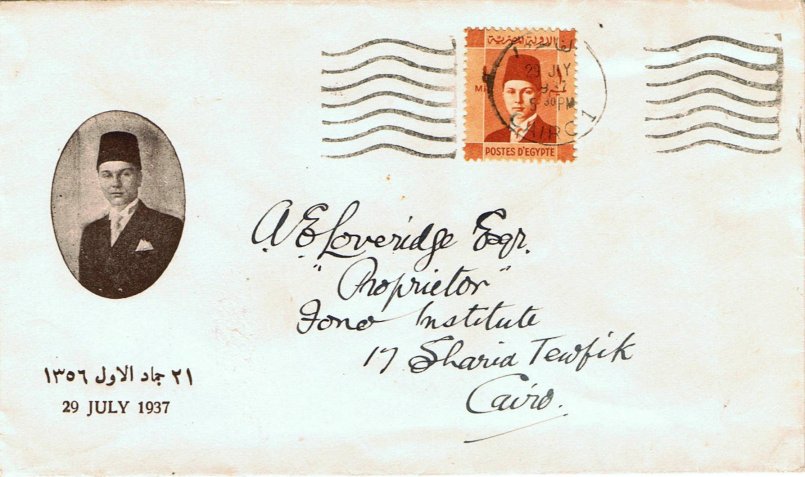 الدولة المصرية
29 JLY
5 30 PM
CAIRO 1
POSTES D'EGYPTE
A. E. Loveridge Esqr.
"Proprietor"
Fono Institute
17 Sharia Tewfik
Cairo.
٢١ جماد الاول ١٣٥٦
29 JULY 1937